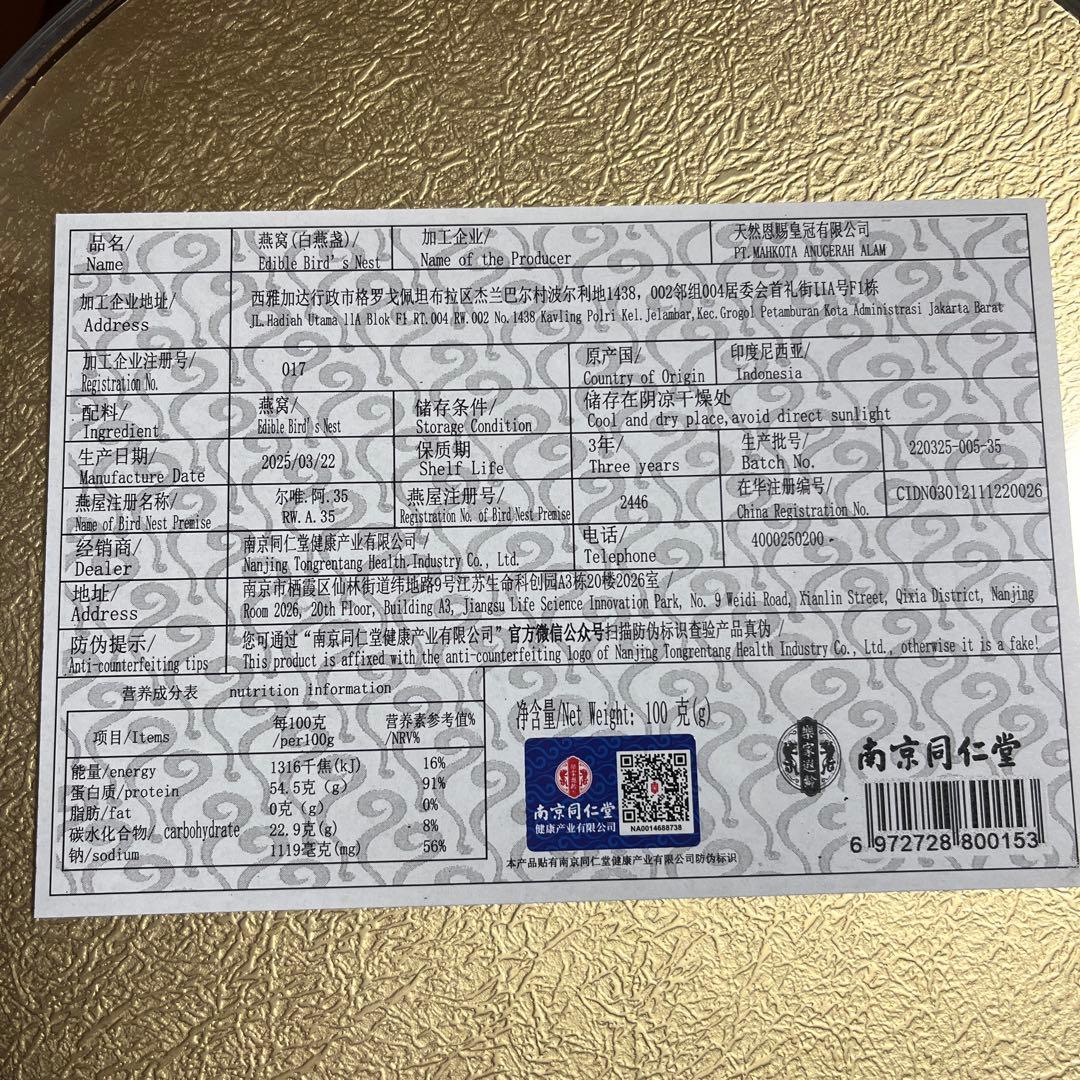 品名/ 燕窝(白燕盏)/ 加工企业/ 天然恩赐皇冠有限公司
Name Edible Bird's Nest Name of the Producer PT.MAHKOTA ANUGERAH ALAM
加工企业地址/ 西雅加达行政市格罗戈佩坦布拉区杰兰巴尔村波尔利地1438，002邻组004居委会首礼街IIA号F1栋
Address JL.Hadiah Utama 11A Blok F1 RT.004 RW.002 No.1438 Kavling Polri Kel.Jelambar,Kec.Grogol Petamburan Kota Administrasi Jakarta Barat
加工企业注册号/ 017 原产国/ 印度尼西亚/
Registration No. Country of Origin Indonesia
配料/ 燕窝/ 储存条件/ 储存在阴凉干燥处
Ingredient Edible Bird's Nest Storage Condition Cool and dry place,avoid direct sunlight
生产日期/ 2025/03/22 保质期 3年/ 生产批号/ 220325-005-35
Manufacture Date Shelf Life Three years Batch No.
燕屋注册名称/ 尔唯.阿.35 燕屋注册号/ 2446 在华注册编号/ CIDN03012111220026
Name of Bird Nest Premise RW.A.35 Registration No. of Bird Nest Premise China Registration No.
经销商/ 南京同仁堂健康产业有限公司 / 电话/ 4000250200
Dealer Nanjing Tongrentang Health.Industry Co., Ltd. Telephone
地址/ 南京市栖霞区仙林街道纬地路9号江苏生命科创园A3栋20楼2026室 /
Address Room 2026, 20th Floor, Building A3, Jiangsu Life Science Innovation Park, No. 9 Weidi Road, Xianlin Street, Qixia District, Nanjing
防伪提示/ 您可通过“南京同仁堂健康产业有限公司”官方微信公众号扫描防伪标识查验产品真伪 /
Anti-counterfeiting tips This product is affixed with the anti-counterfeiting logo of Nanjing Tongrentang Health Industry Co., Ltd., otherwise it is a fake!
营养成分表 nutrition information
项目/Items 每100克/per100g 营养素参考值%/NRV%
能量/energy 1316千焦(kJ) 16%
蛋白质/protein 54.5克 (g) 91%
脂肪/fat 0克 (g) 0%
碳水化合物/ carbohydrate 22.9克(g) 8%
钠/sodium 1119毫克(mg) 56%
净含量/Net Weight: 100 克(g)
南京同仁堂
健康产业有限公司
NA0014688738
本产品贴有南京同仁堂健康产业有限公司防伪标识
樂家老鋪
南京同仁堂
6 972728 800153